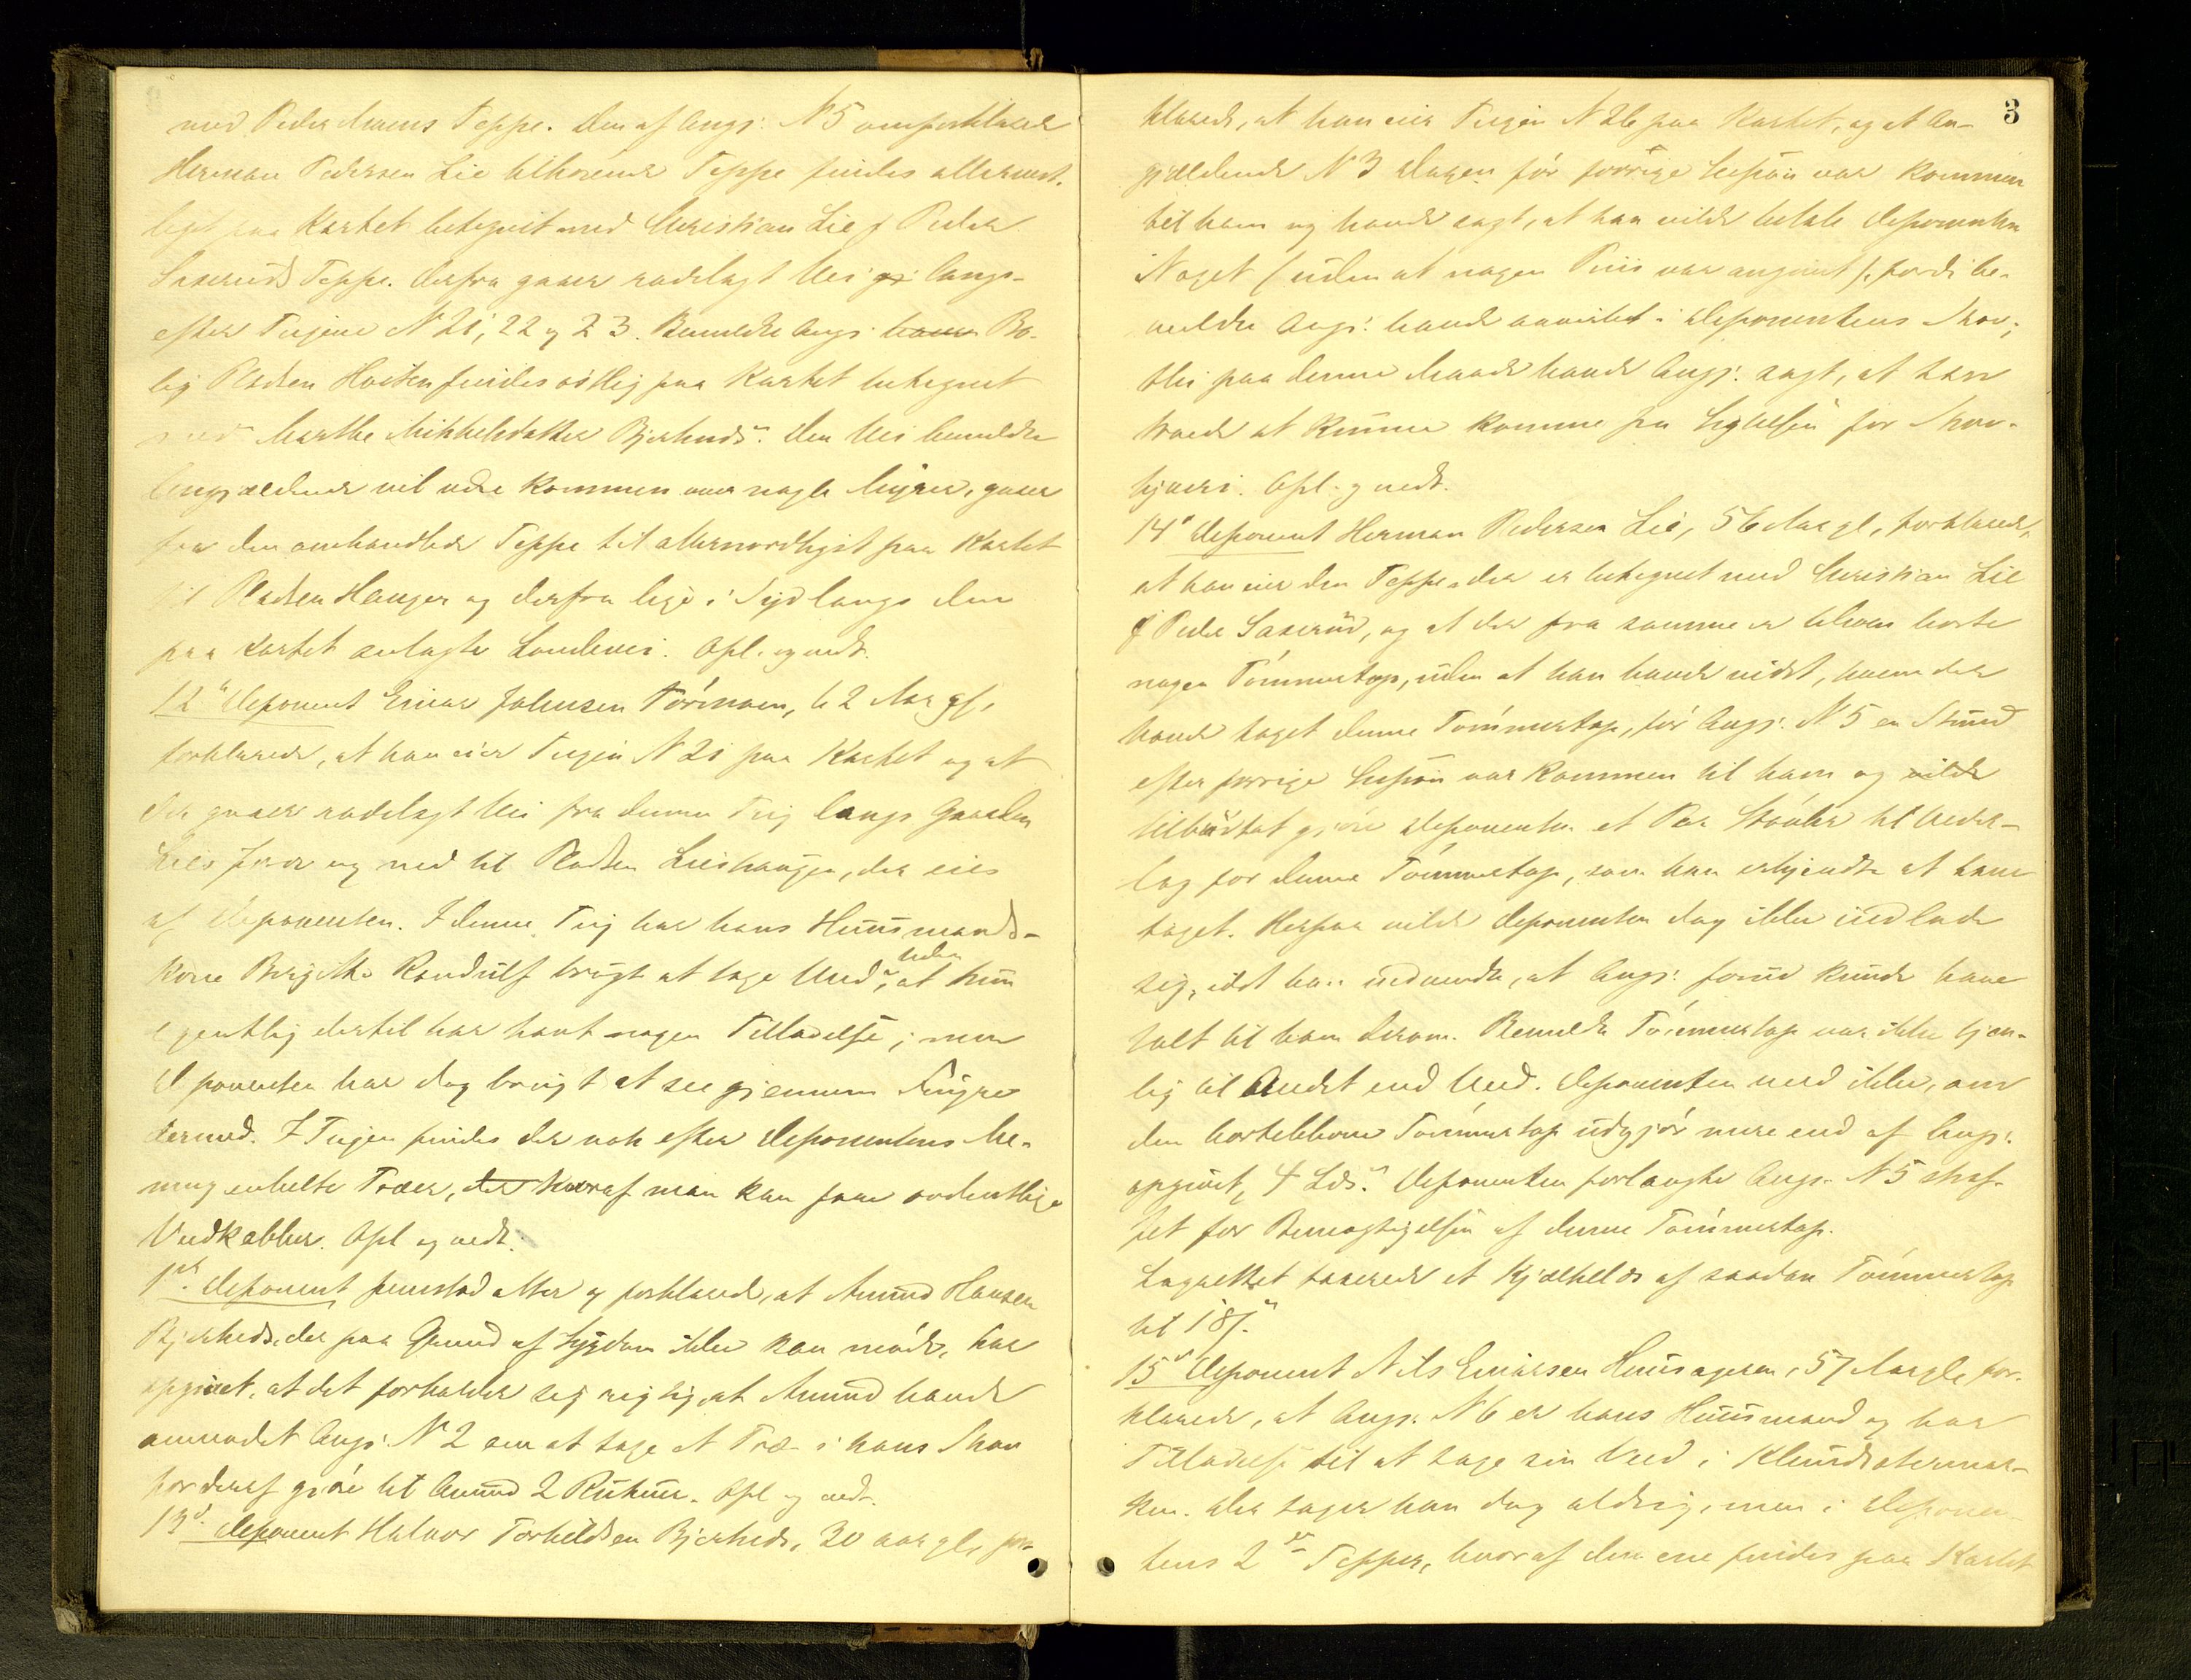 med Peder Moens Teppe. Den af Angj: N 5 omforklarede
Herman Pedersen Lie tilhørende Teppe findes allernord-
ligst paa Kartet betegnet med Christian Lie & Peder
Saxeruds Teppe. Derfra gaaer rodelagt Vei langs-
efter Teigene N 21, 22 og 23. Bemeldte Angj: Bo-
lig Pladsen findes østlig paa Kartet betegnet
med Marthe Mikkelsdatter Bjerknds". Den Vei bemeldte
Angjældende vil være kommen over nogle Myrer, gaaer
fra den omhandlede Teppe til allernordligst paa Kartet
til Pladsen Haugen og derfra lige i Syd langs den
paa Kartet anlagte Landevei. Opl. og vedt.
12te Deponent Einar Johnsen Tørmoen, 62 Aar gl.
forklarede, at han eier Teigen N 21 paa Kartet og at
der gaaer rodelagt Vei fra denne Teig langs Gaarden
Lies Jorder og ned til Pladsen Lieshaugen, der eies
af Deponenten. I denne Teig har hans Huusmands-
kone Birgithe Randulf brugt at tage Ved, uden at hun
egentlig dertil har havt nogen Tilladelse; men
Deponenten har dog brugt at see gjennem Fingre
dermed. I Teigen findes der nok efter Deponentens Me-
ning enkelte Træer, hvoraf man kan faae ordentlige
Vedkabber. Opl og vedt.
1ste Deponent fremstod atter og forklarede, at Amund Hansen
Bjerknds, der paa Grund af Sygdom ikke kan møde, har
opgivet, at det forholder sig rigtig, at Amund havde
anmodet Angj: N 2 om at tage et Træ i hans Skov
for deraf gjøre til Amund 2 Rukuer. Opl og vedt.
13de Deponent Halvor Torkildsen Bjerknds, 30 aar gl, for-
3
klarede, at han eier Teigen N 26 paa Kartet, og at An-
gjældende N 3 Dagen før forrige Session var kommen
til ham og havde sagt, at han vilde betale Deponenten
Noget (uden at nogen Priis var angivet), fordi be-
meldte Angj: havde anvirket i Deponentens Skov;
thi paa denne Maade havde Angj: sagt, at han
troede at kunne komme fra Sigtelsen for Skov-
tyveri. Opl. og vedt.
14de Deponent Herman Pedersen Lie, 56 Aar gl, forklarede,
at han eier den Teppe, der er betegnet med Christian Lie
& Peder Saxerud, og at der fra samme er bleven borte
nogen Tømmertop, uden at han havde vidst, hvem der
havde taget denne Tømmertop, før Angj: N 5 en Stund
efter forrige Session var kommen til ham og vilde
tilbudt at gjøre Deponenten et Par Støvler til Veder-
lag for denne Tømmertop, som han erkjendte at have
taget. Herpaa vilde Deponenten dog ikke indlade
sig, idet han indvendte, at Angj: forud kunde have
talt til ham derom. Bemeldte Tømmertop var ikke tjen-
lig til Andet end Ved. Deponenten veed ikke, om
den bortblevne Tømmertop udgjør mere end af Angj:
opgivet, 4 Lds." Deponenten forlangte Angj. N 5 straf-
fet for Bemægtigelsen af denne Tømmertop.
Lagrettet taxerede et Kjælkelds af saadan Tømmertop
til 18ß."
15de Deponent Nils Einarsen Huusageren, 57 Aar gl, for-
klarede, at Angj: N 6 er hans Huusmand og har
Tilladelse til at tage sin Ved i
ken. Der tager han dog aldrig, men i Deponen-
tens 2de Tepper, hvoraf den ene findes paa Kartet